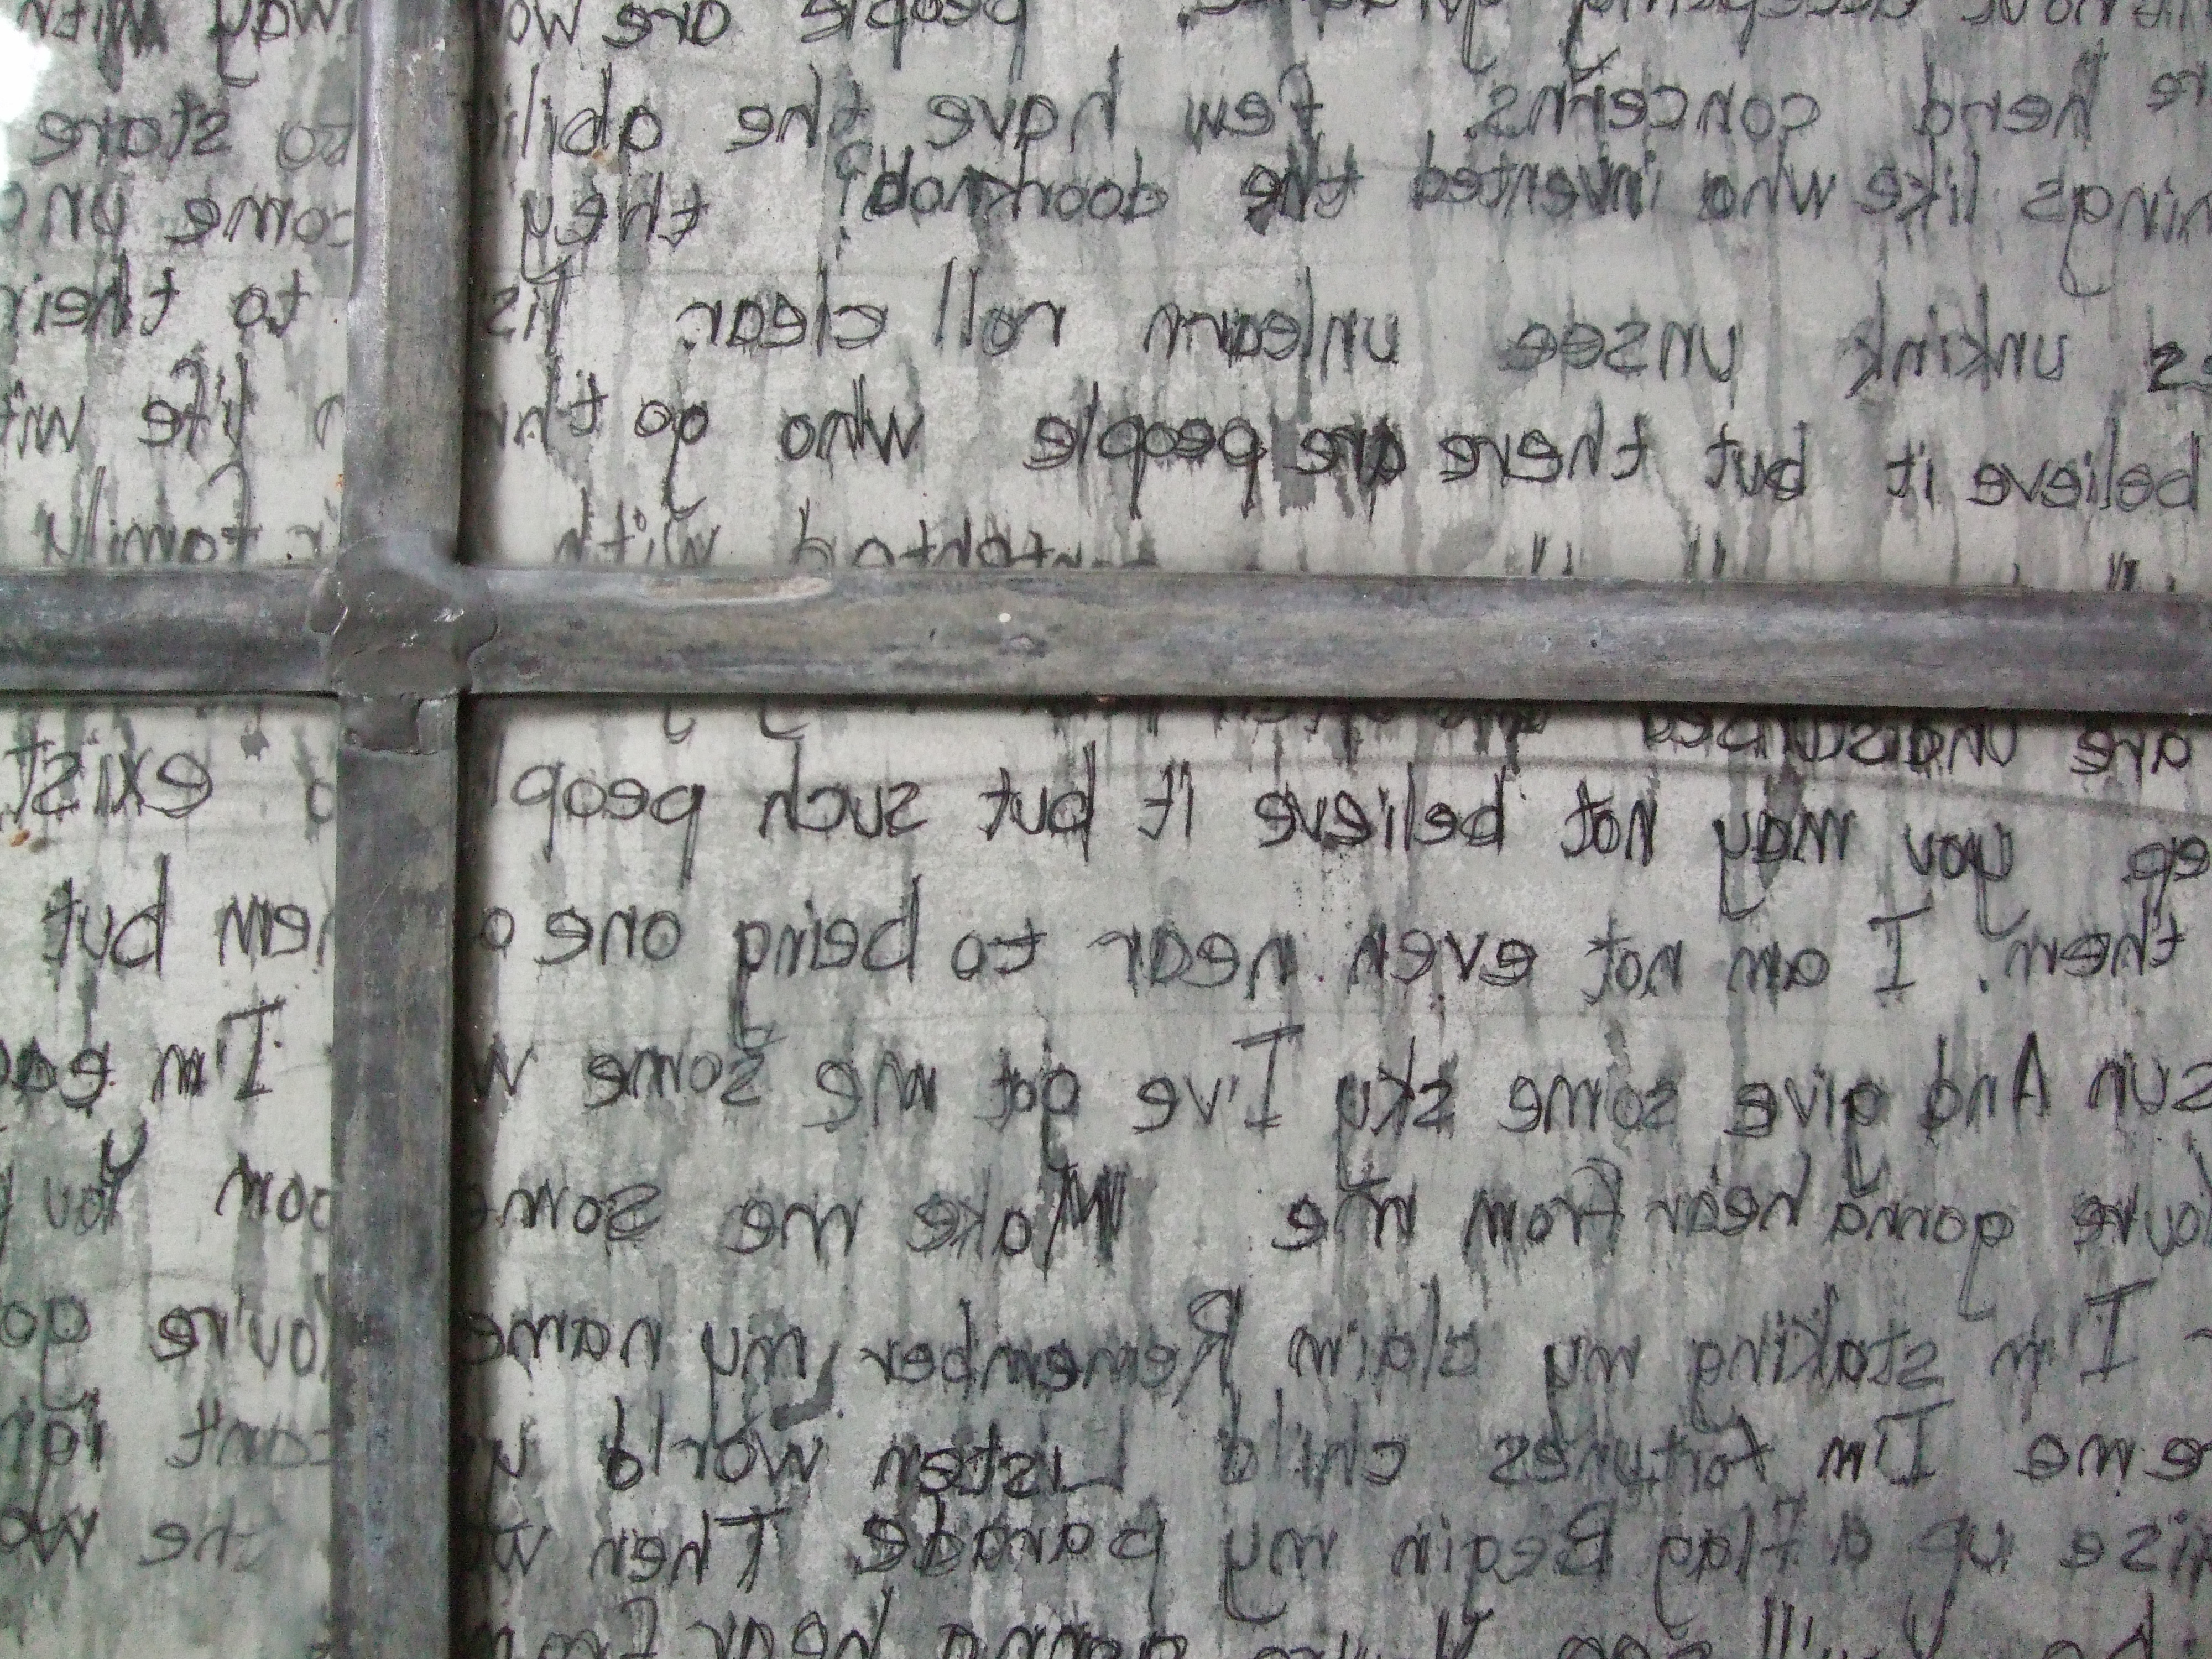 without accepting people are wo way with
re herd concerns. few have the abili to stare
hings like who invented the doorknob? they come und
es unkink unsee unlearn roll clear. lis to their
believe it but there are people who go th life wit
contented with family
are undisturbed
ep you may not believe it but such peop exist
them. I am not even near to being one o em but
sun And give some sky I've got me some w I'm eag
oure gonna hear from me Make me some oom You
I'm staking my claim Remember my name You're go
eme I'm fortunes child Listen world y cant ign
ise up a flag Begin my parade Then w the wo
gonna hear from